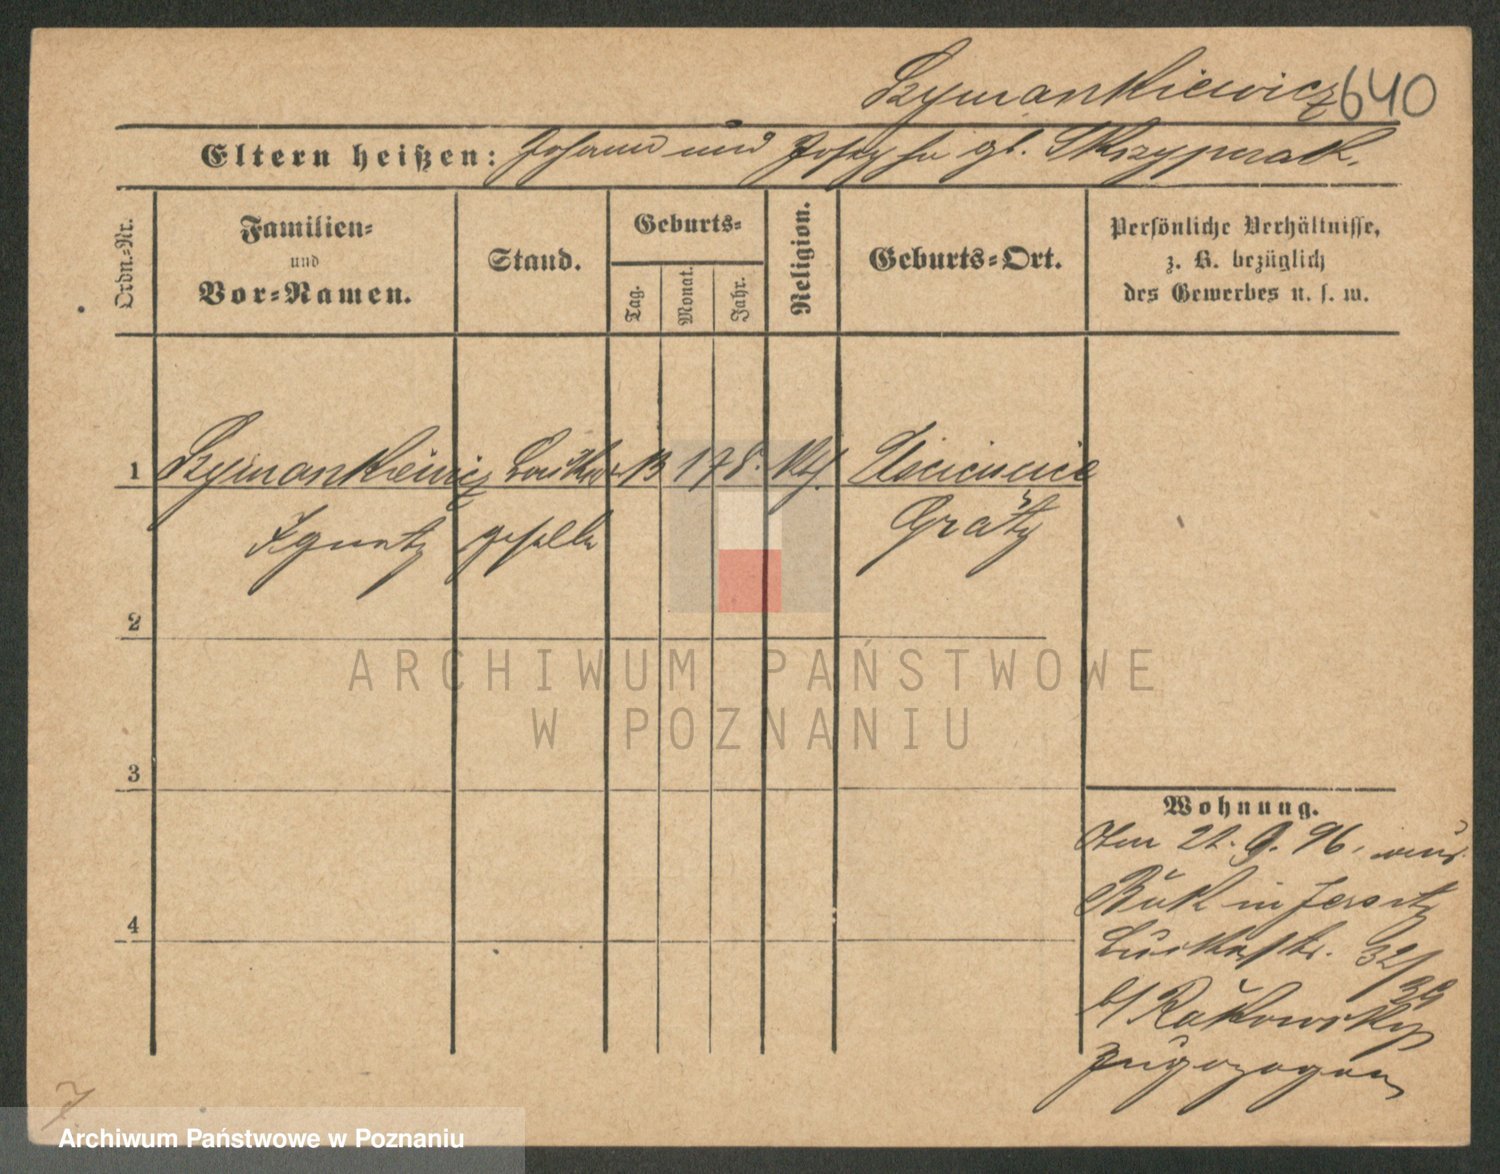 Szymankiewicz 640
Eltern heißen: Johann und Josepha gb. Skrzypczak.
Ordn.-Nr.
Familien-
und
Vor-Namen.
Stand.
Geburts-
Tag.
Monat.
Jahr.
Religion.
Geburts-Ort.
Persönliche Verhältnisse,
z. B. bezüglich
des Gewerbes u. s. w.
1 Szymankiewicz 13 1 78. kth.
Ignatz geselle Grätz
2
3
4
Wohnung.
Am 21. 9. 96. aus
Buk in Jersitz
32/
39
b/ Rakowsky
zugezogen
ARCHIWUM PAŃSTWOWE
W POZNANIU
Archiwum Państwowe w Poznaniu